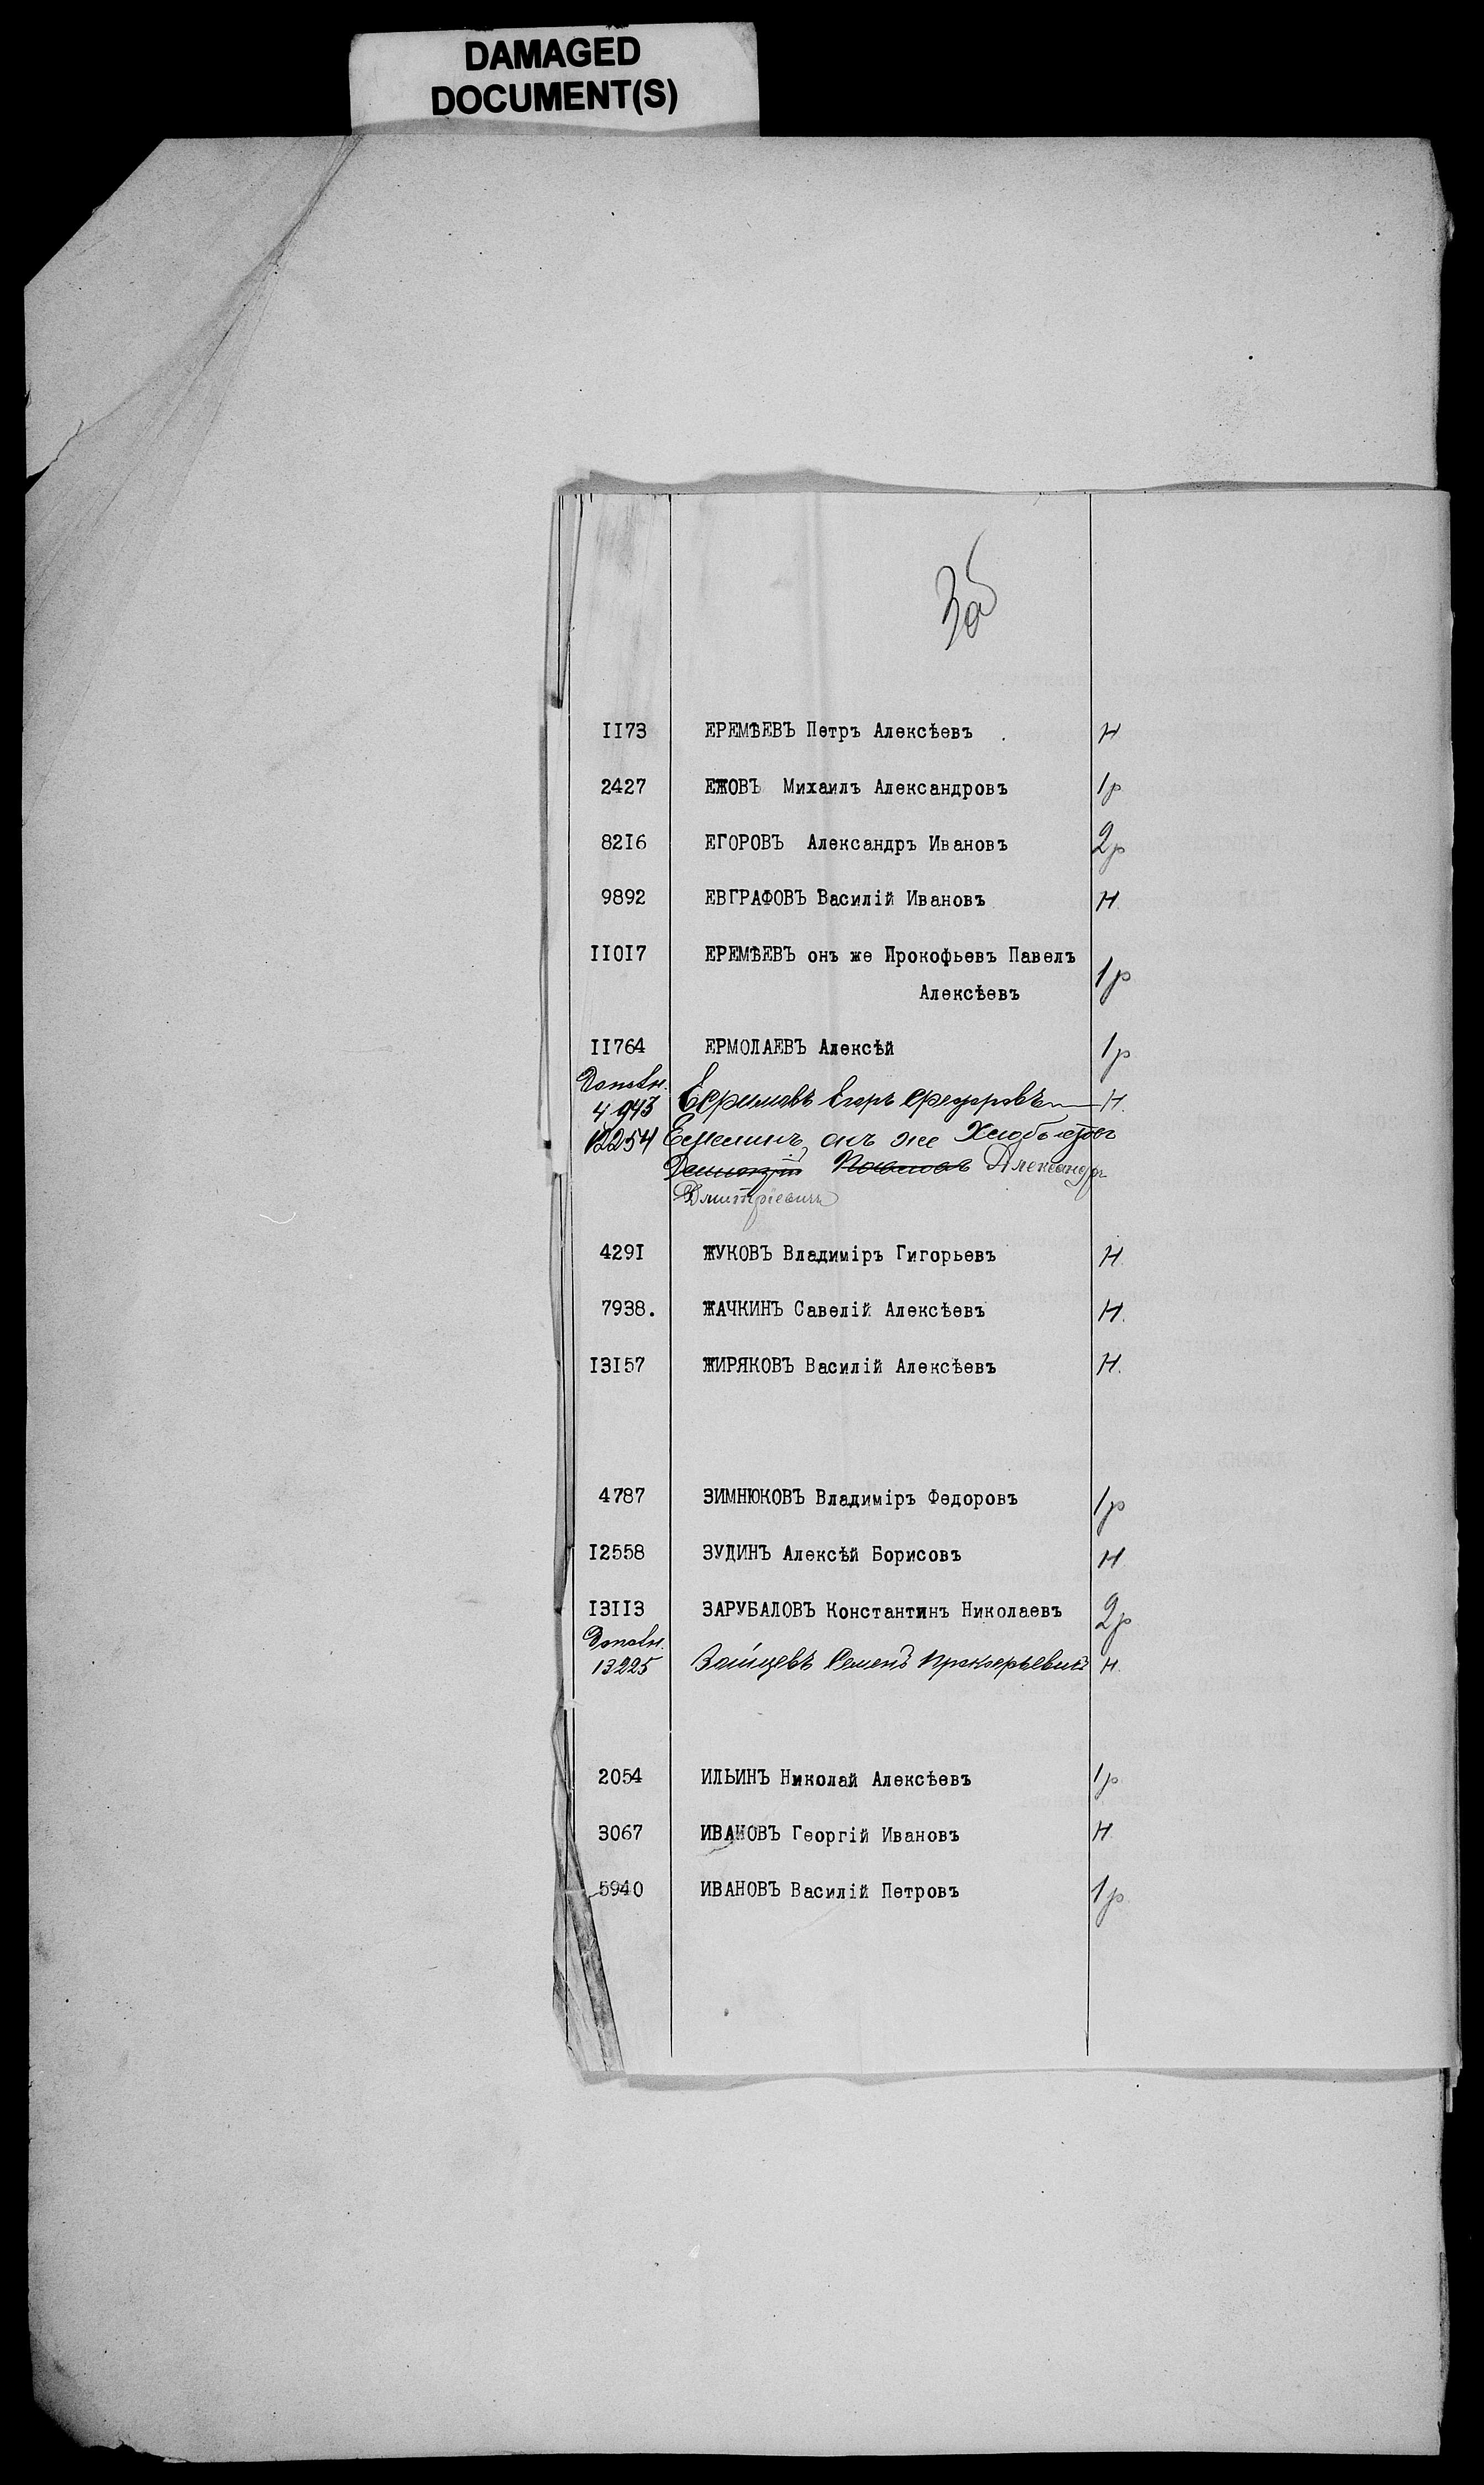 DAMAGED
DOCUMENT(S)
За
II73 ЕРЕМѢЕВЪ Петръ Алексѣевъ . Н
2427 ЕЖОВЪ Михаилъ Александровъ 1р
82I6 ЕГОРОВЪ Александръ Ивановъ 2р
9892 ЕВГРАФОВЪ Василій Ивановъ Н.
II0I7 ЕРЕМѢЕВЪ онъ же Прокофьевъ Павелъ 1р
Алексѣевъ
II764 ЕРМОЛАЕВЪ Алексѣй 1р
Дополн.
4943 Ефимовъ Егоръ Н.
12254 онъ же
Александръ
Дмитріевичъ
429I ЖУКОВЪ Владиміръ Гигорьевъ Н.
7938. ЖАЧКИНЪ Савелій Алексѣевъ Н.
I3I57 ЖИРЯКОВЪ Василій Алексѣевъ Н.
4787 ЗИМНЮКОВЪ Владиміръ Федоровъ 1р
I2558 ЗУДИНЪ Алексѣй Борисовъ Н
I3II3 ЗАРУБАЛОВЪ Константинъ Николаевъ 2р
Дополн.
13225 Зайцевъ Семенъ Прокофьевичъ Н.
2054 ИЛЬИНЪ Николай Алексѣевъ 1р
3067 ИВАНОВЪ Георгій Ивановъ Н
5940 ИВАНОВЪ Василій Петровъ 1р